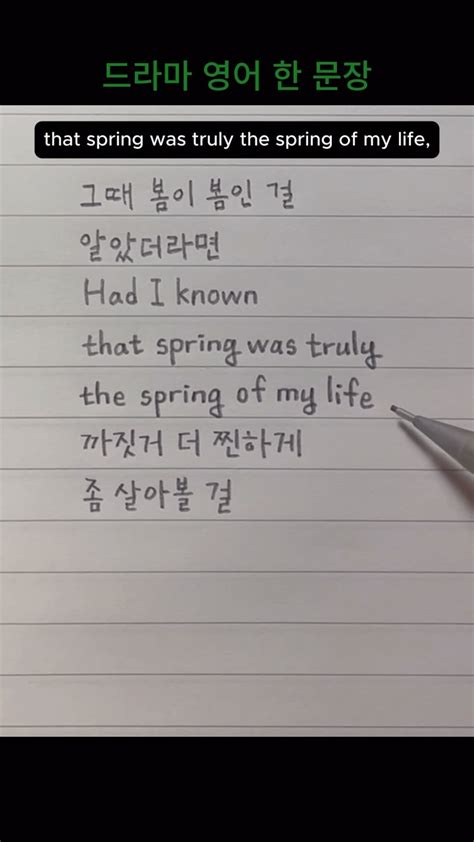 드라마 영어 한 문장
that spring was truly the spring of my life,
그때 봄이 봄인 걸
알았더라면
Had I known
that spring was truly
the spring of my life
까짓거 더 찐하게
좀 살아볼 걸